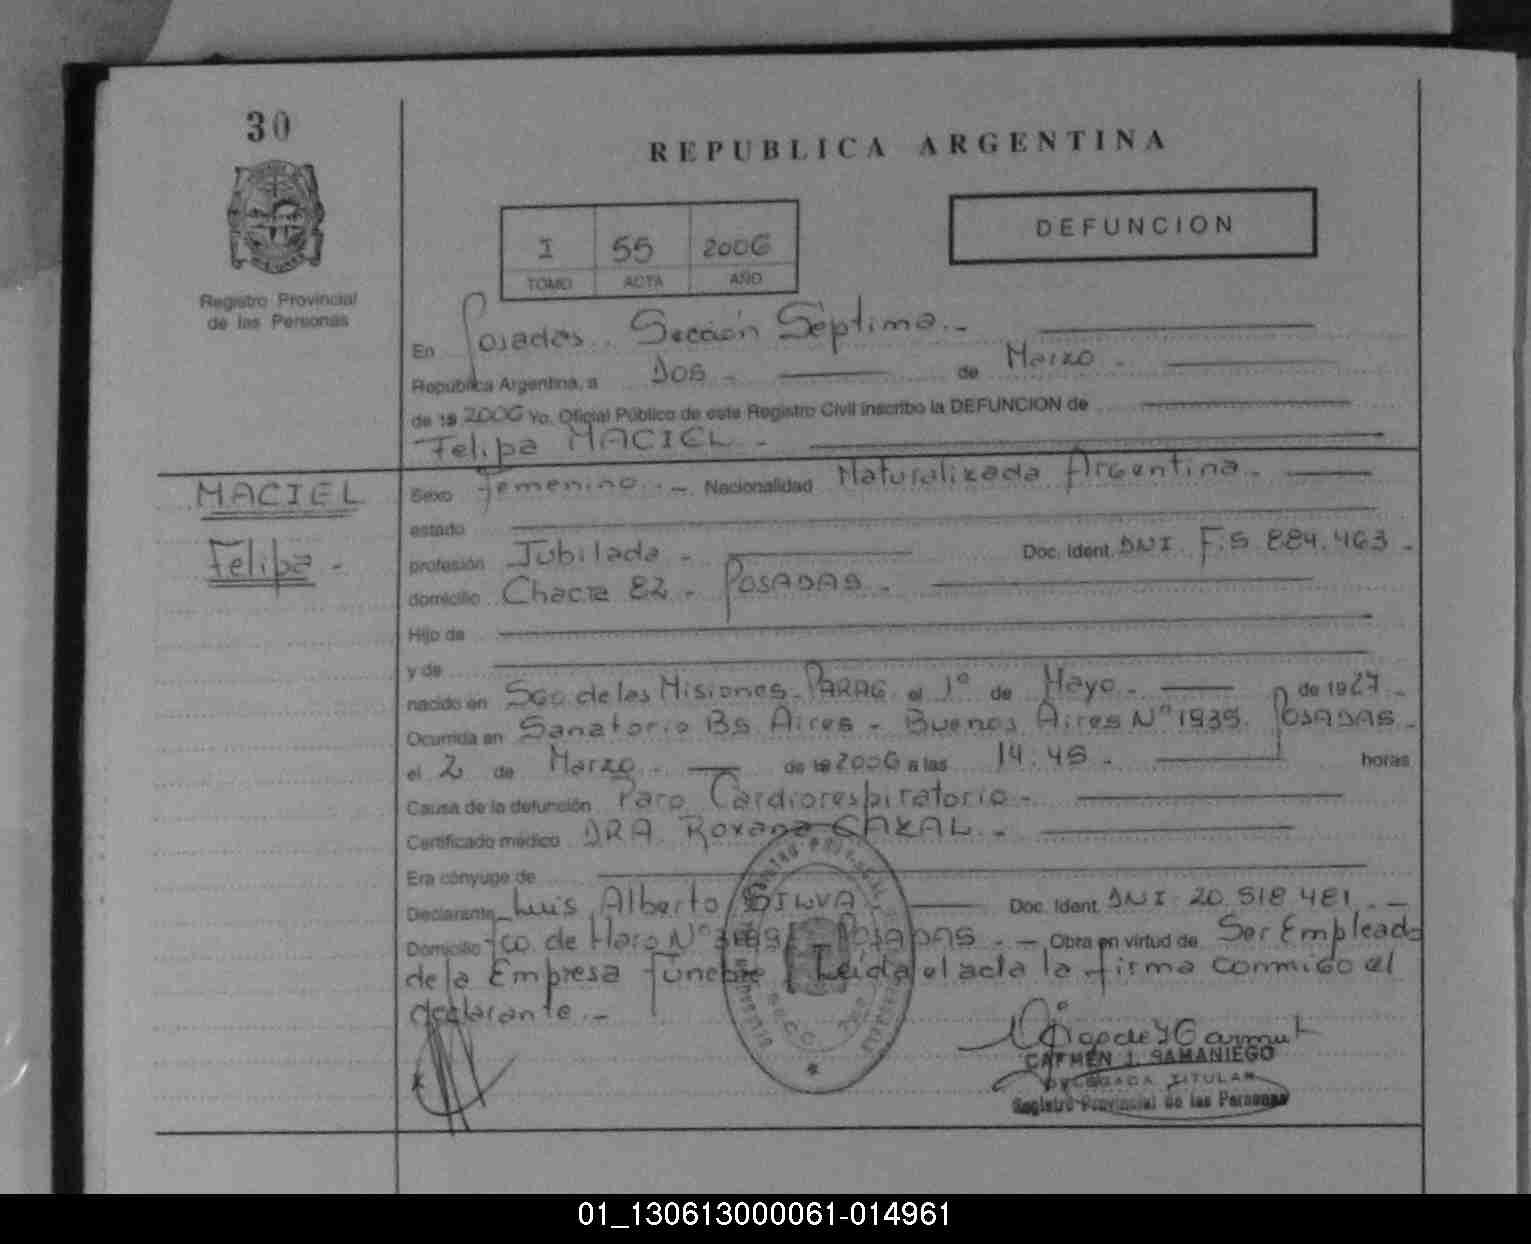 30
REPUBLICA ARGENTINA
I 55 2006
TOMO ACTA AÑO
DEFUNCION
Registro Provincial
de las Personas
En Posadas. Sección Séptima.-
Republica Argentina, a Dos - de Marzo -
de 19 2006 Yo, Oficial Público de este Registro Civil inscribo la DEFUNCION de
Felipa MACIEL -
MACIEL
Felipa -
Sexo femenino.- Nacionalidad Naturalizada Argentina -
estado
profesión Jubilada - Doc. Ident. DNI F.5.884.463 -
domicilio Chacra 82 - POSADAS -
Hijo de
y de
nacido en Sgo de las Misiones - PARAG el 1º de Mayo - de 1927 -
Ocurrida en Sanatorio Bs Aires - Buenos Aires Nº 1935. POSADAS -
el 2 de Marzo - de 19 2006 a las 14:45 - horas
Causa de la defunción Paro Cardiorespiratorio -
Certificado médico DRA. Roxana -
Era cónyuge de
Declarante Luis Alberto SILVA Doc. Ident. DNI 20.518.481 -
Domicilio Fco. de Haro Nº POSADAS - Obra en virtud de Ser Empleado
de la Empresa fúnebre Leída el acta la firma conmigo el
declarante.-
CARMEN J. SAMANIEGO
DELEGADA TITULAR
Registro Provincial de las Personas
01_130613000061-014961